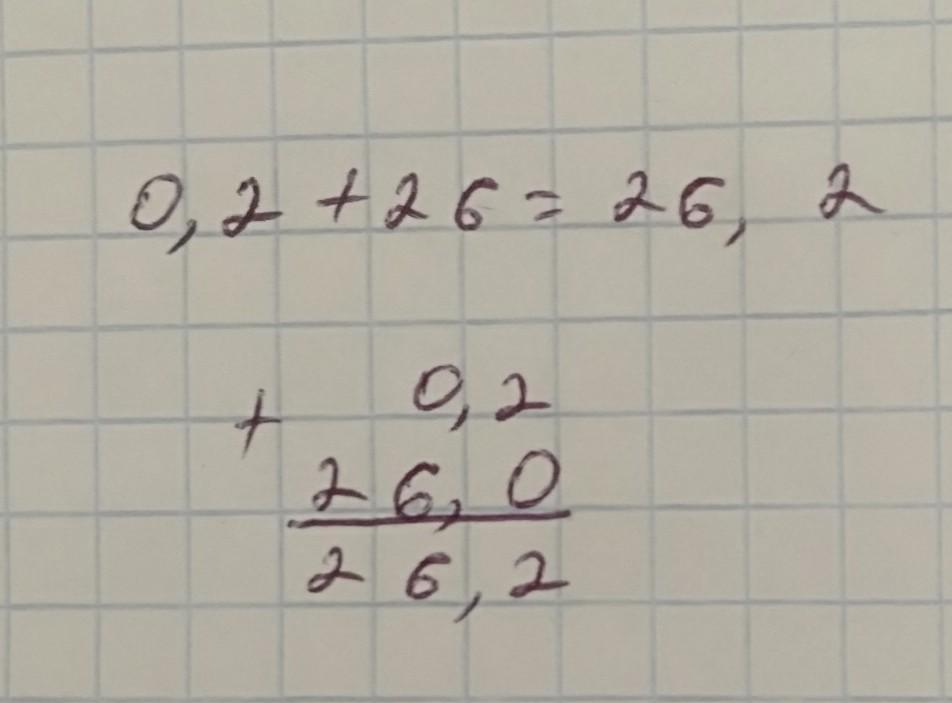 0,2 + 26 = 26, 2
+ 0,2
26,0
26,2